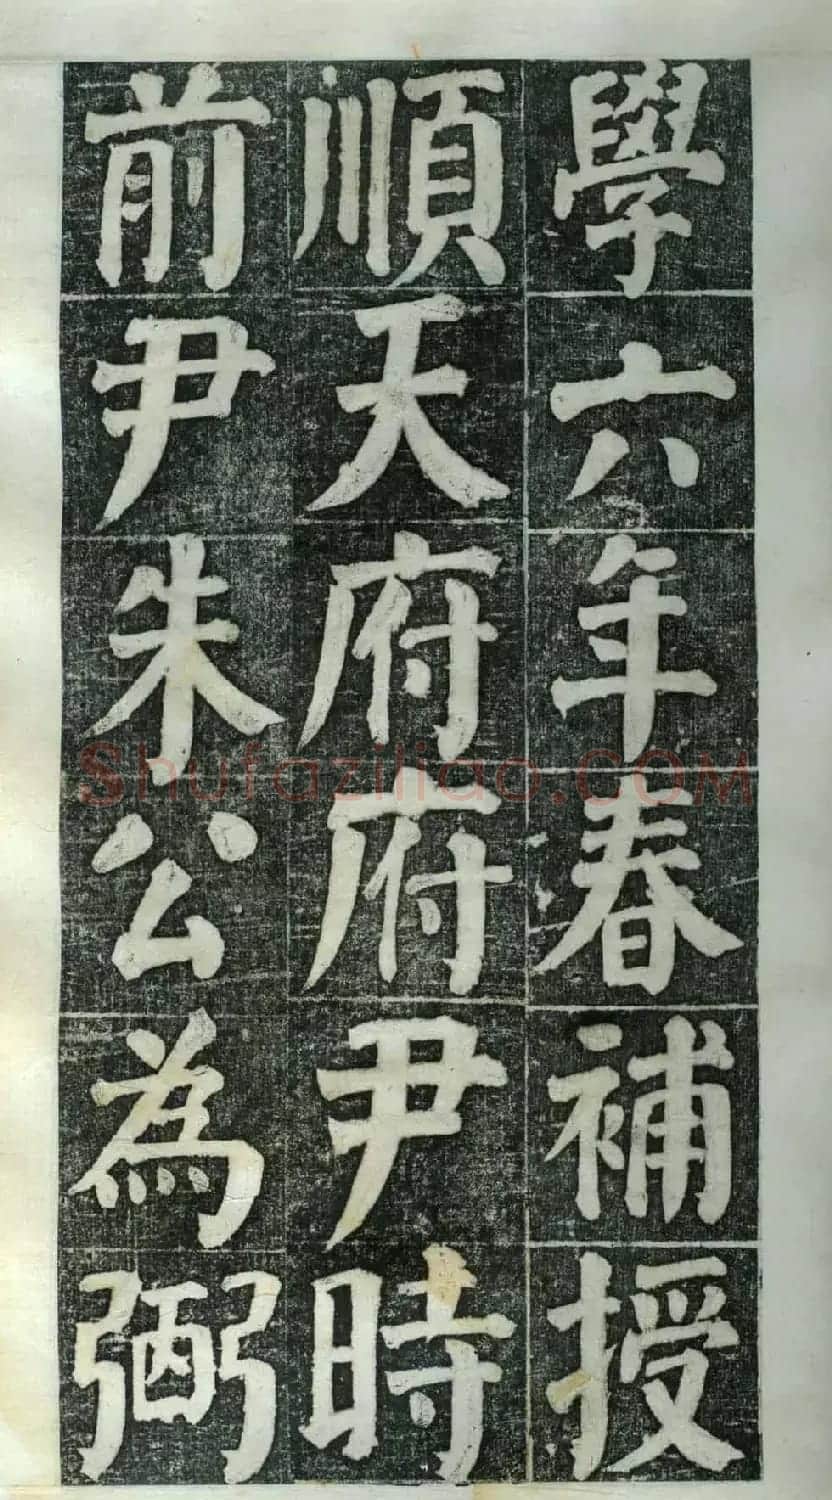 學六年春補授
順天府府尹時
前尹朱公為弼
Shufaziliao.COM